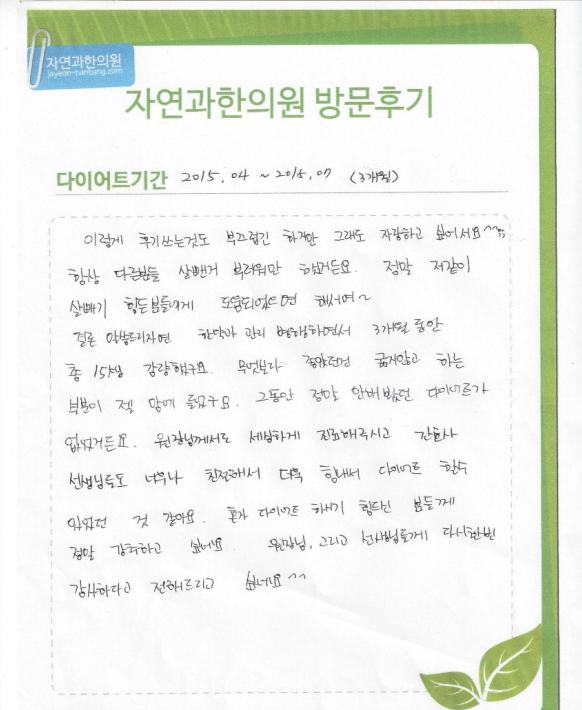 자연과한의원
jayeon-hanbang.com
자연과한의원 방문후기
다이어트기간 2015.04 ~ 2015.07 (3개월)
이렇게 후기쓰는것도 부끄럽긴 하지만 그래도 자랑하고 싶어서요^^
항상 다른분들 살뺀거 부러워만 하거든요. 정말 저같이
살빼기 힘든분들에게 도움되었으면 해서여~
결론 말씀드리자면 한약과 관리 병행하면서 3개월동안
총 15키로 감량했구요. 무엇보다 좋았던건 굶지않고 하는
부분이 젤 맘에 들었구요. 그동안 정말 안해봤던 다이어트가
없었거든요. 원장님께서도 세심하게 진료해주시고 간호사
선생님들도 너무나 친절해서 더욱 힘내서 다이어트 할수
있었던 것 같아요. 혼자 다이어트 하시기 힘드신 분들께
정말 강추하고 싶네요. 원장님, 그리고 선생님들께 다시한번
감사하다고 전해드리고 싶네요^^